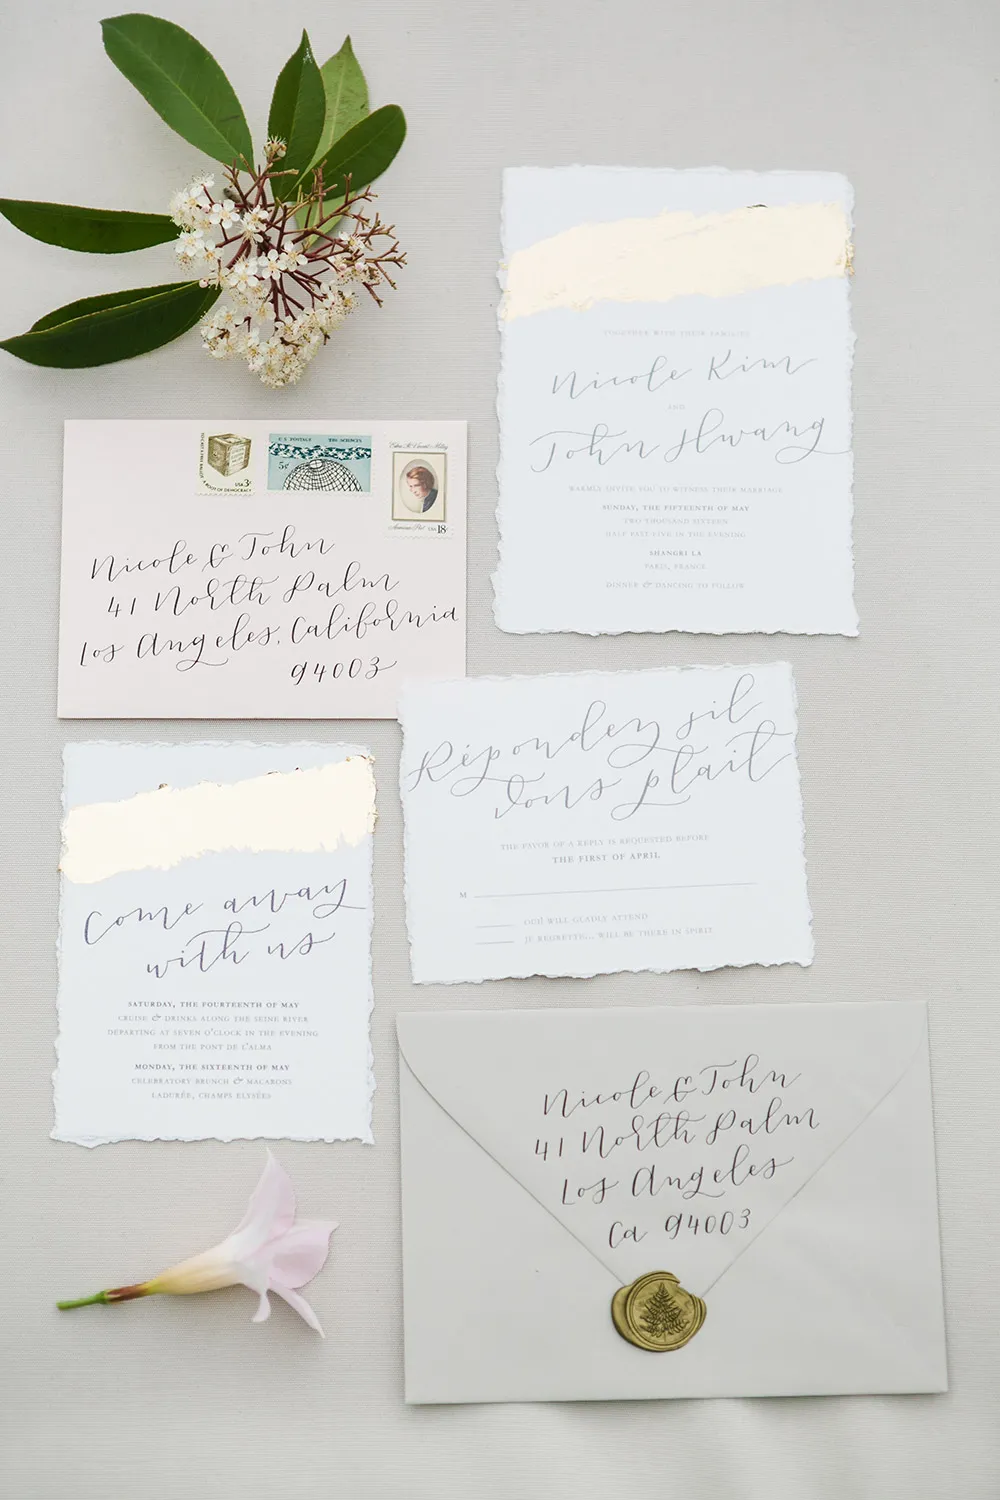 TOGETHER WITH THEIR FAMILIES
Nicole Kim
AND
John Hwang
WARMLY INVITE YOU TO WITNESS THEIR MARRIAGE
SUNDAY, THE FIFTEENTH OF MAY
TWO THOUSAND SIXTEEN
HALF PAST FIVE IN THE EVENING
SHANGRI LA
PARIS, FRANCE
DINNER & DANCING TO FOLLOW
A ROOT OF DEMOCRACY
USA 3c
U.S. POSTAGE THE SCIENCES
5¢
Edna St. Vincent Millay
American Poet USA 18c
Nicole & John
41 North Palm
Los Angeles, California
94003
Répondez sil
vous plait
THE FAVOR OF A REPLY IS REQUESTED BEFORE
THE FIRST OF APRIL
M
OUI! WILL GLADLY ATTEND
JE REGRETTE... WILL BE THERE IN SPIRIT
Come away
with us
SATURDAY, THE FOURTEENTH OF MAY
CRUISE & DRINKS ALONG THE SEINE RIVER
DEPARTING AT SEVEN O'CLOCK IN THE EVENING
FROM THE PONT DE L'ALMA
MONDAY, THE SIXTEENTH OF MAY
CELEBRATORY BRUNCH & MACARONS
LADURÉE, CHAMPS ELYSÉES
Nicole & John
41 North Palm
Los Angeles
Ca 94003